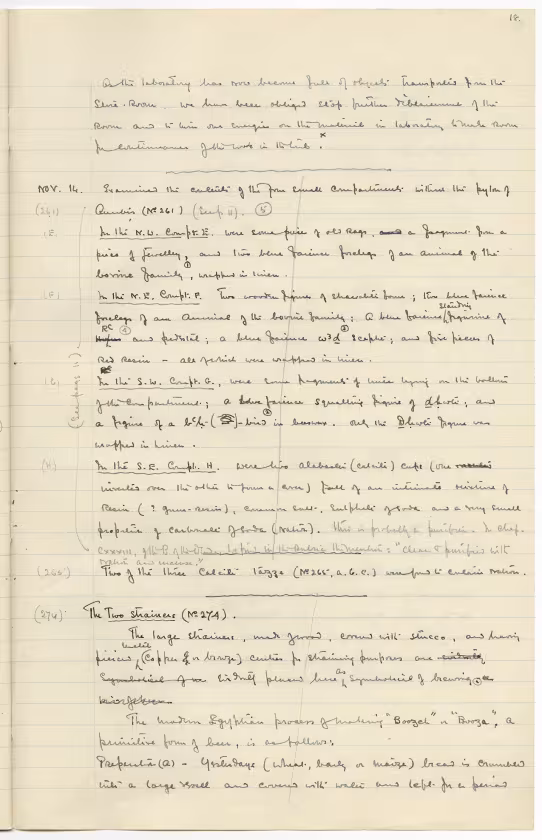 18.
As the laboratory has now become full of objects transported from the
Store-Room we have been obliged stop further déblaiement of the
Room and to turn our energies on the material in laboratory to make room
for continuance of the work in the tomb. x
NOV. 14. Examined the contents of the four small compartments within the pylon of
(261) Anubis (No 261) (See p. 11). (5)
(E) In the N.W. Compt. E. were some pieces of old rags, a fragment from a
piece of jewellery, and two blue faience forelegs of an animal of the
bovine family, wrapped in linen.
(F) In the N.E. Compt. F. Two wooden figures of shawabti form; two blue faience
forelegs of an animal of the bovine family; a blue faience standing figurine of
Re and pedestal; a blue faience wȝḏ sceptre; and five pieces of
Red Resin - all of which were wrapped in linen.
(G) In the S.W. Compt. G., were some fragments of linen lying on the bottom
of the compartment; a blue faience squatting figure of Dhuti; and
a figure of a -bird in. Only the Dhuti figure was
wrapped in linen.
(H) In the S.E. Compt. H. were two alabaster (calcite) cups (one
inverted over the other to form a cover) full of an intimate mixture of
Resin (? gum-resin), common salt, sulphate of soda and a very small
proportion of carbonate of soda (natron). This is probably a purifier. In Chap.
CXXXII, of the "clean & purifies with
natron and incense."
(265) Two of the three Calcite tazze (No 265, a. b. c.) were found to contain natron.
(See page 11)
(274) The Two strainers (No 274).
The large strainers, made of wood, covered with stucco, and having
pierced metal (copper or bronze) centres for straining purposes are
evidently placed here as symbolical of brewing
The modern Egyptian process of making "Boozeh" or "Booza", a
primitive form of beer, is as follows:
Preparation (a) - Yesterdays (wheat, barley or maize) bread is crumbled
into a large vessel and covered with water and left for a period